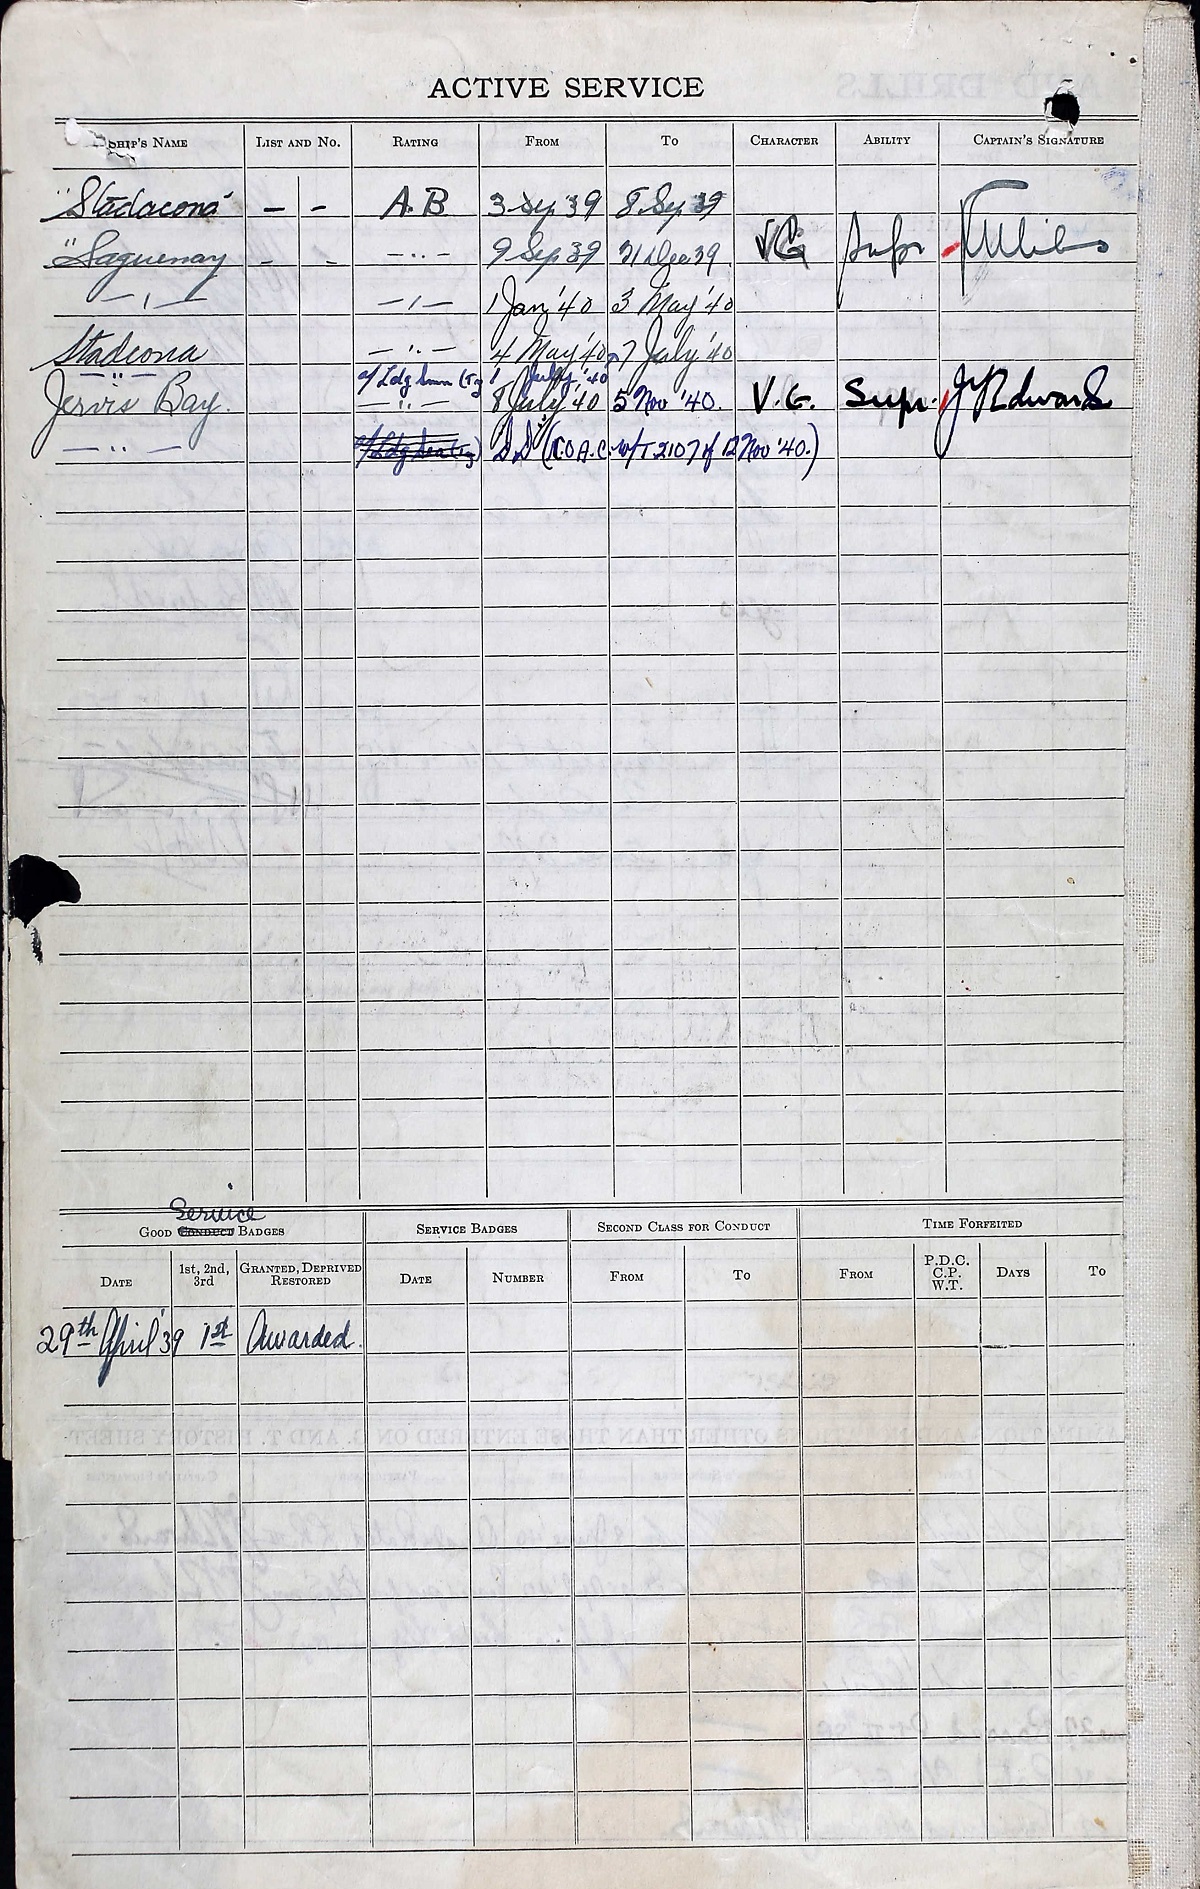 ACTIVE SERVICE
SHIP'S NAME LIST AND NO. RATING FROM TO CHARACTER ABILITY CAPTAIN'S SIGNATURE
"Stadacona" — - A.B 3 Sep '39 8 Sep 39
"Saguenay - - —..— 9 Sep 39 31 Dec 39. VG Supr
— , — — , — 1 Jan '40 3 May '40
Stadcona — .. — 4 May '40 7 July '40
— .. — a/ Ldg Smn (Ty 1 July '40
Jervis Bay. — .. — 8 July '40 5 Nov '40. V.G. Supr. Edwards
— .. — a/Ldg Sea (Ty) DD (C.O.A.C. w/T 2107 of 12 Nov '40.)
Service
GOOD CONDUCT BADGES SERVICE BADGES SECOND CLASS FOR CONDUCT TIME FORFEITED
DATE 1st, 2nd, 3rd GRANTED, DEPRIVED RESTORED DATE NUMBER FROM TO FROM P.D.C. C.P. W.T. DAYS TO
29th April '39 1st Awarded.